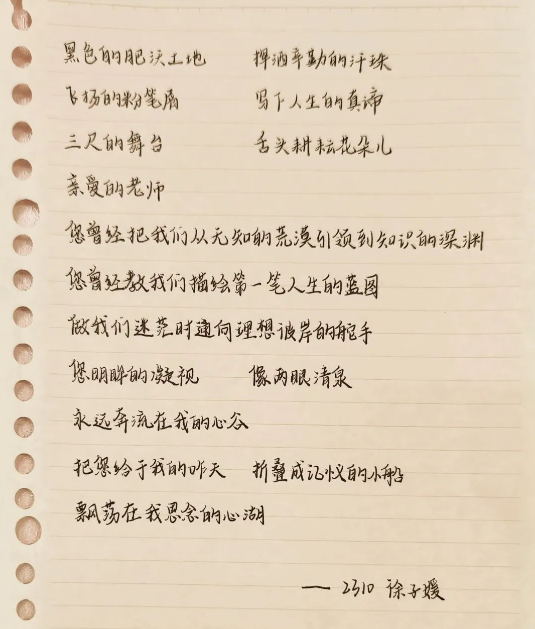 黑色的肥沃土地 挥洒辛勤的汗珠
飞扬的粉笔屑 写下人生的真谛
三尺的舞台 舌头耕耘花朵儿
亲爱的老师
您曾经把我们从无知的荒漠引领到知识的深渊
您曾经教我们描绘第一笔人生的蓝图
做我们迷茫时通向理想彼岸的舵手
您明眸的凝视 像两眼清泉
永远奔流在我的心谷
把您给于我的昨天 折叠成记忆的小船
飘荡在我思念的心湖
—— 2310 徐子媛